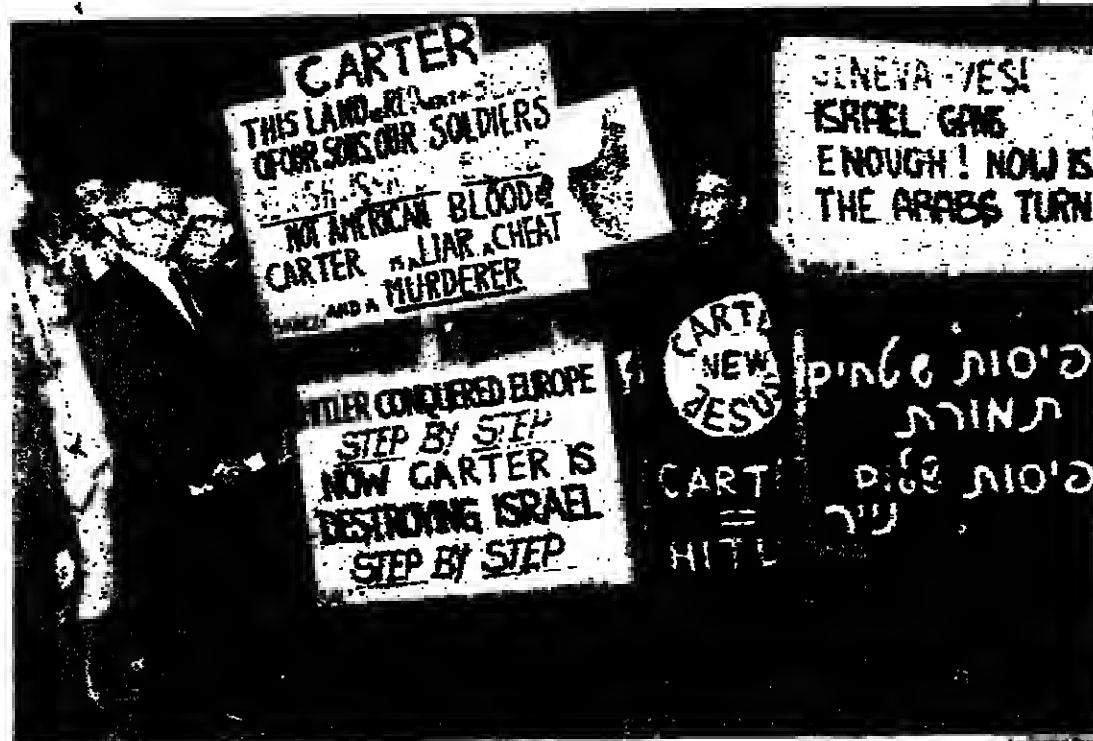 CARTER
THIS LAND
OF OUR SONS, OUR SOLDIERS
NOT AMERICAN BLOOD
CARTER IS A LIAR A CHEAT
AND A MURDERER
GENEVA - YES!
ISRAEL GAVE
ENOUGH! NOW IS
THE ARABS TURN
HITLER CONQUERED EUROPE
STEP BY STEP
NOW CARTER IS
DESTROYING ISRAEL
STEP BY STEP
CARTE
NEW
JESUS
CART
=
HITL
פיסות שטחים
תמורת
פיסות שלום
נייר